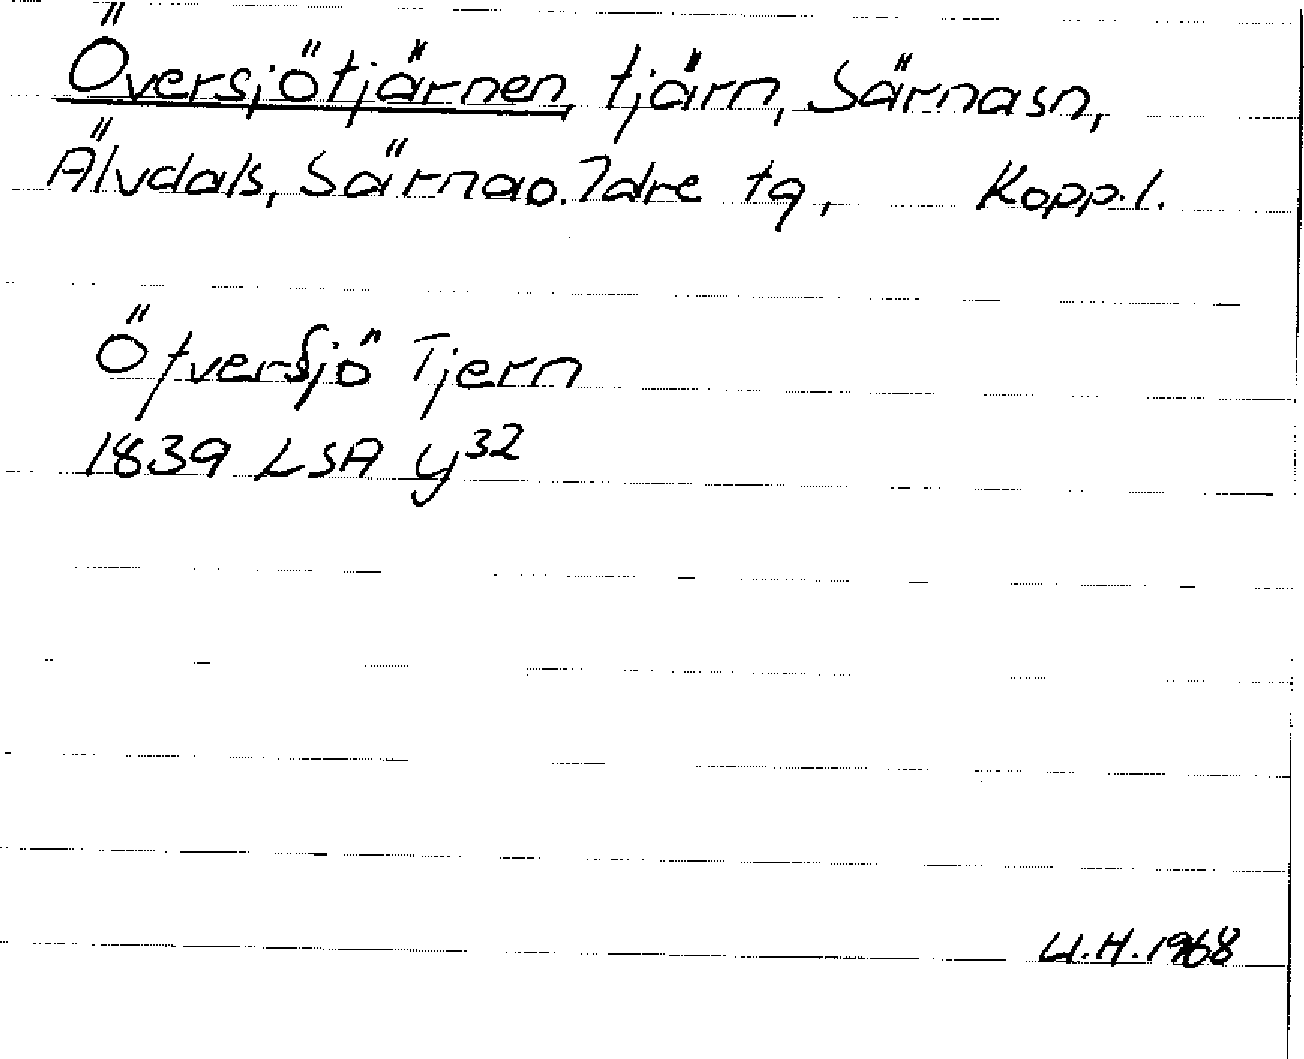 Översjötjärnen, tjärn, Särnasn,
Älvdals, Särnao.Idre tg, Kopp.l.
Öfversjö Tjern
1839 LSA y32
U.H.1968